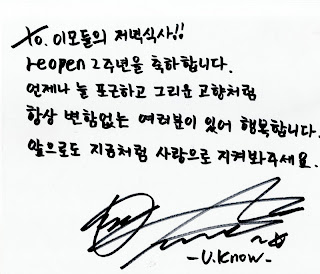 To. 이모들의 저녁식사!!
reopen 2주년을 축하합니다.
언제나 늘 포근하고 그리운 고향처럼
항상 변함없는 여러분이 있어 행복합니다.
앞으로도 지금처럼 사랑으로 지켜봐주세요.
-U.Know-